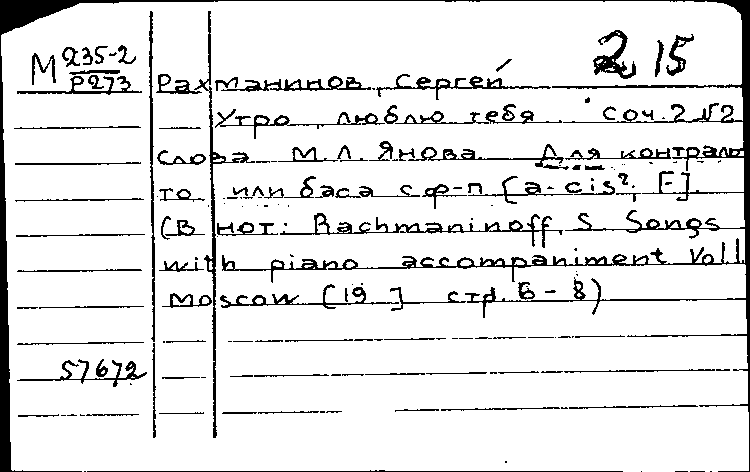 2 15
М 235-2
Р273
Рахманинов, Сергей
Утро. люблю тебя. соч. 2 №2
слова М.Л. Янова. Для контраль
то или баса с ф-п [a-cis², F].
(В нот: Rachmaninoff, S. Songs
with piano accompaniment Vol 1
Moscow [19 ] стр. 6-8)
57672